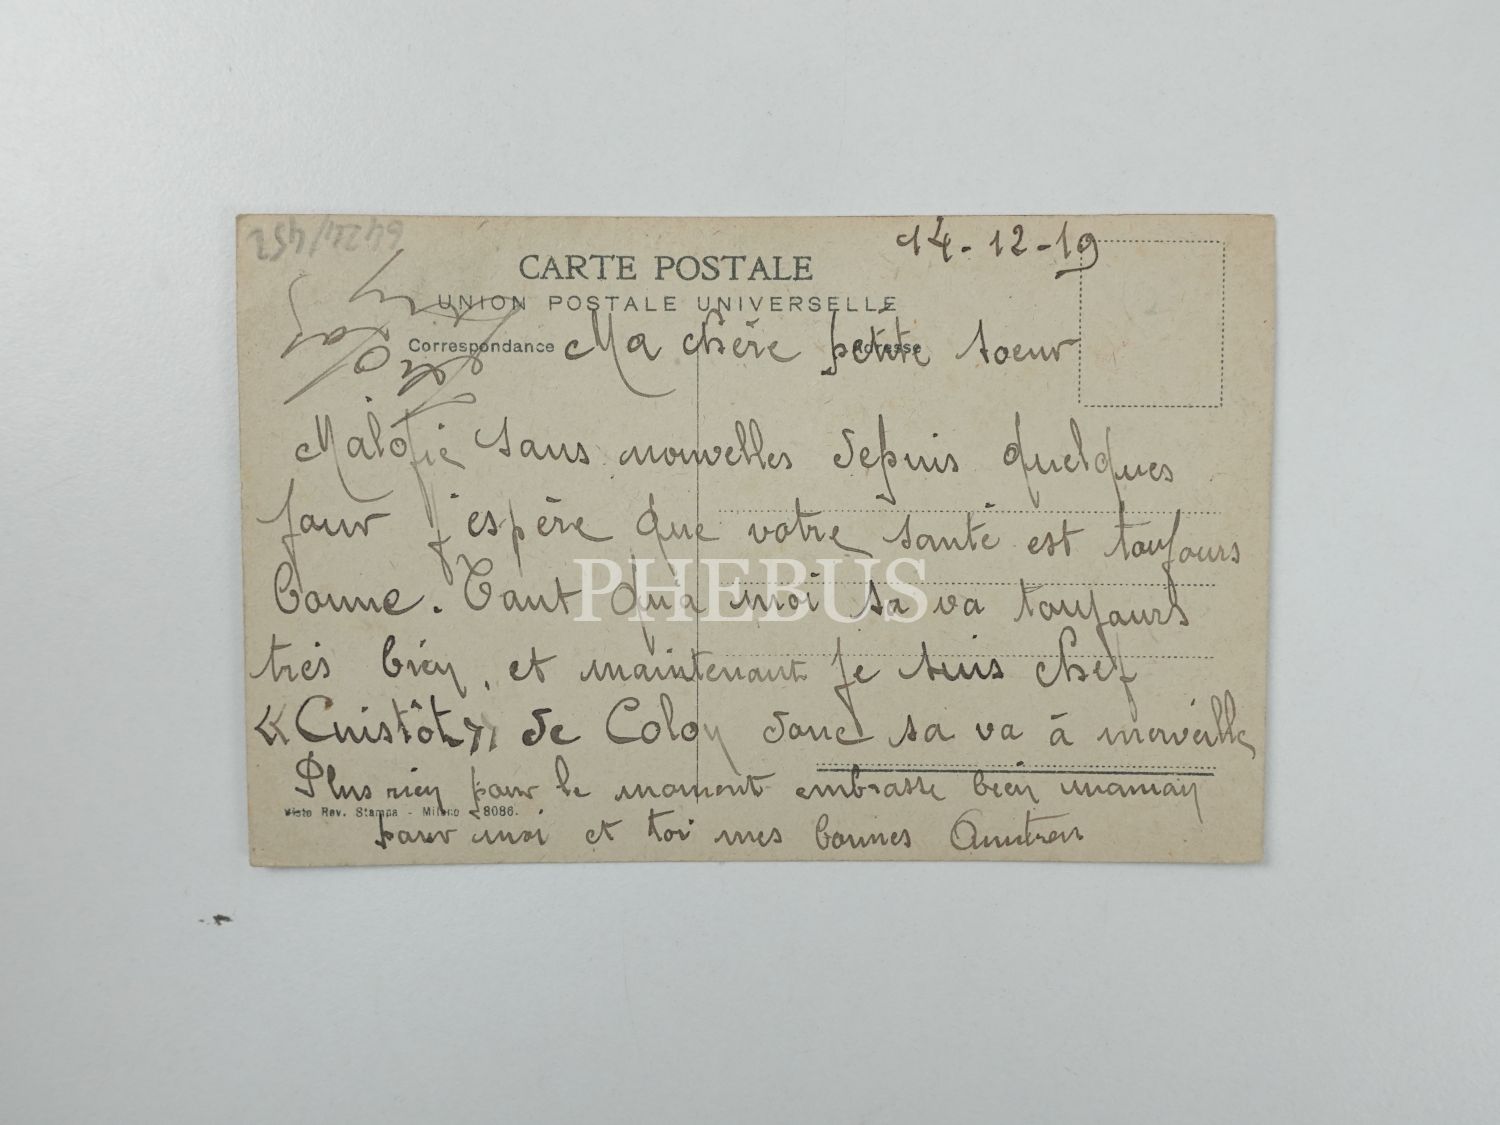 14-12-19
CARTE POSTALE
UNION POSTALE UNIVERSELLE
Correspondance
Adresse
Ma chère petite soeur
Malofie sans nouvelles depuis quelques
jour j'espère que votre santé est toujours
bonne. Tant qu'à moi sa va toujours
très bien, et maintenant je suis chef
« Cuistôt » de Coloy donc sa va à merveille
Plus rien pour le moment embrasse bien maman
pour moi et toi mes bonnes
Visto Rev. Stampa - Milano 8086.
PHEBUS